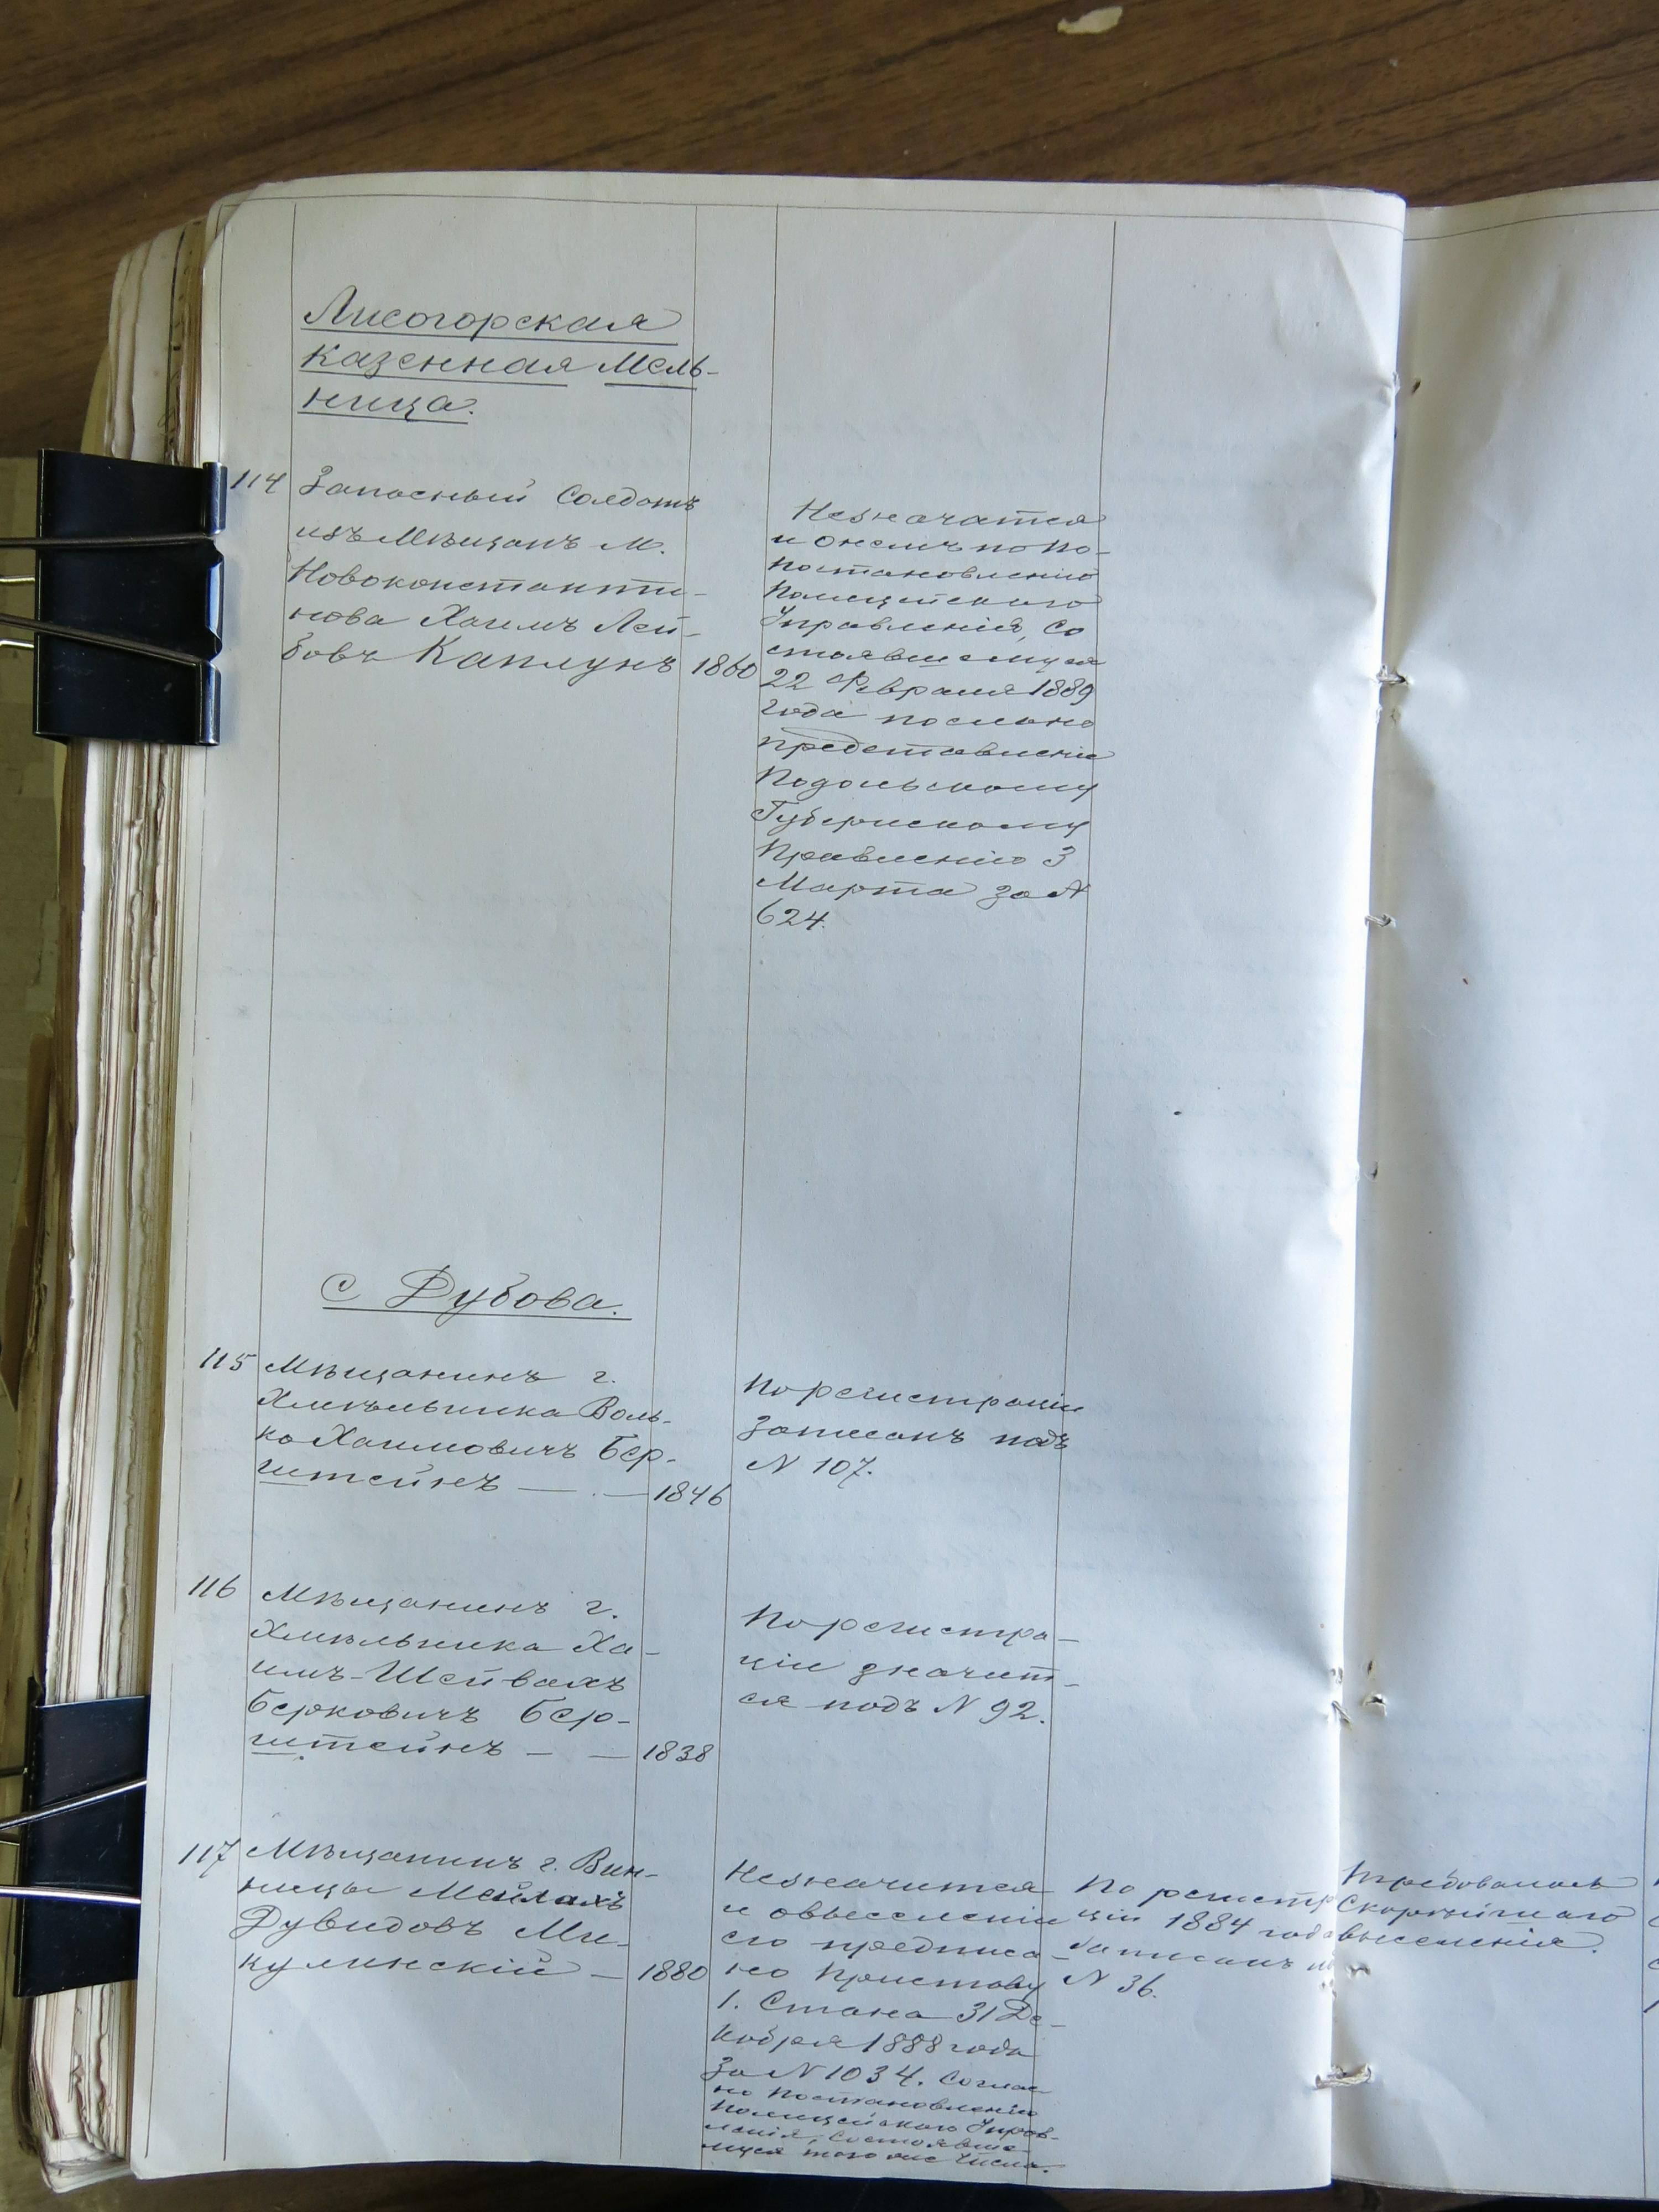 Лисогорская
казенная Мель-
ница.
114 Запасный Солдатъ
изъ Мѣщанъ М.
Новоконстанти-
нова Хаимъ Лей-
бовъ Каплунъ 1860
Незначатся
и онемъ по По-
постановленію
Полицейскаго
Управленія, Со
стоявшемуся
22 Февраля 1889
года послано
представленіе
Подольскому
Губернскому
Правленію 3
Марта за N
624.
с Дубова.
115 Мѣщанинъ г.
Хмѣльника Воль-
ко Хаимовичъ Бер-
штейнъ — . — 1846
По регистраціи
записанъ подъ
N 107.
116 Мѣщанинъ г.
Хмѣльника Ха-
имъ-Шейвахъ
Берковичъ Бер-
штейнъ — — 1838
По регистра-
ціи значит-
ся подъ N 92.
117 Мѣщанинъ г. Вин-
ницы Мейлахъ
Дувидовъ Ми-
кулинскій — 1880
Незначится
и овыселеніи
его предписа-
но Приставу
1. Стана 31 Де-
кабря 1888 года
За N 1034. Соглас
но Постановленію
Полицейскаго Управ-
ленія, Состоявше-
муся того же Числа.
По регистр
ціи 1884 года
записанъ
N 36.
Требовалось
Скорѣйшаго
выселенія.